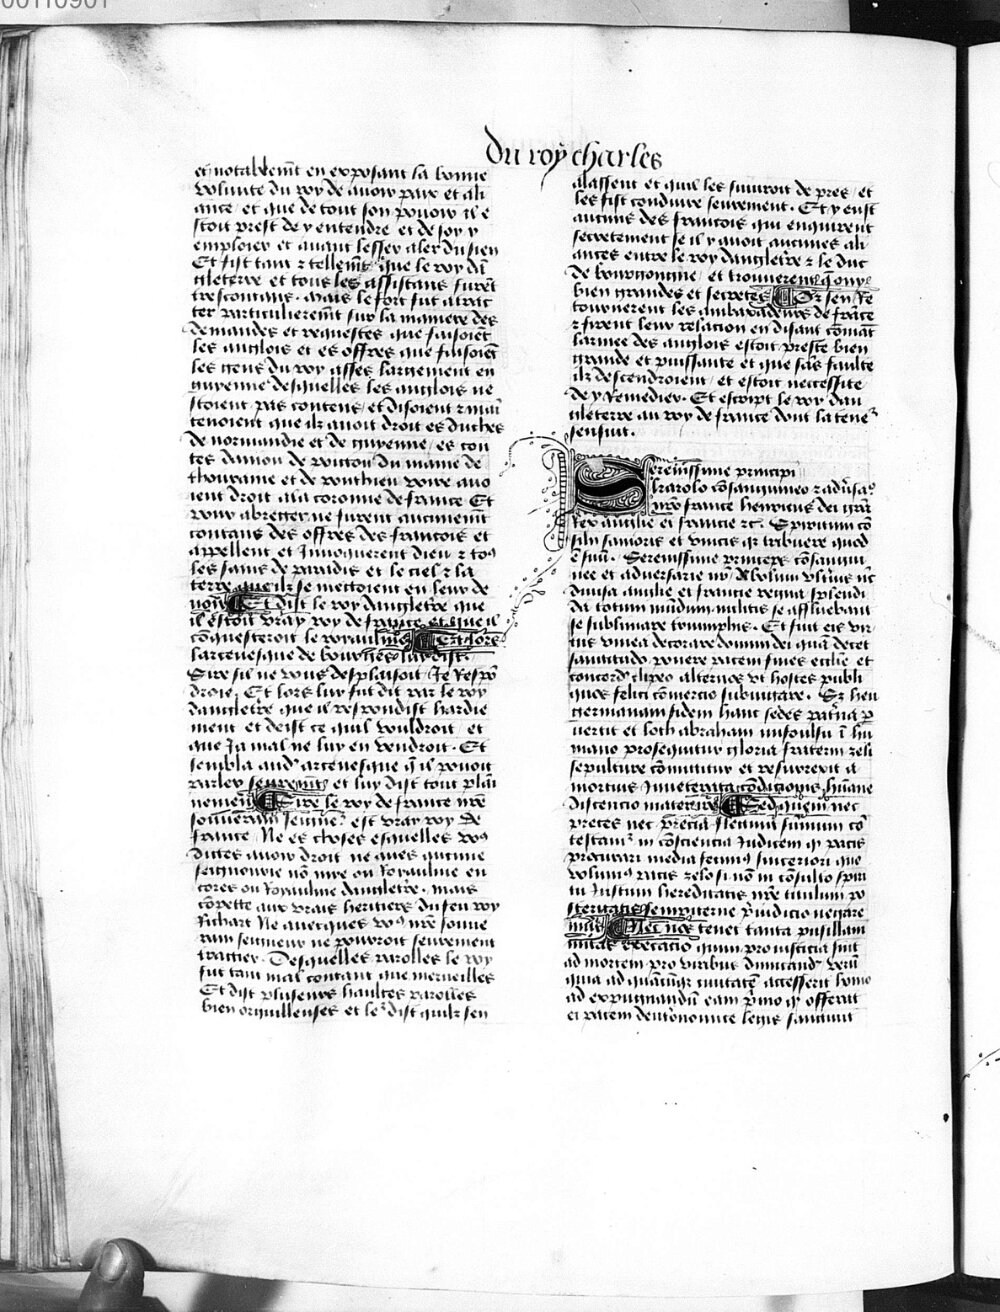 00110901
Du roy charles
et notablemt en exposant la bonne
volunte du roy de avoir paix et ali
ance / et que de tout son povoir il e
stoit prest de y entendre et de soy y
emploier et avant lesser aler du sien
Et fist tant z tellemt que le roy dā
gleterre et tous les assistans furēt
tres contans. Mais le fort fut a trac
ter particulieremēt sur la maniere des
demandes et requestes que faisoiēt
les anglois et es offres que faisoiēt
les gens du roy asses largement en
guyenne desquelles les anglois ne
stoient pas contens / et disoient z mai
tenoient que ilz avoit droit es duches
de normandie et de guyenne / es con
tes danjou de poictou du maine de
thouraine et de ponthieu voire avo
ient droit a la coronne de france Et
pour abreger ne furent aucunemēt
contans des offres des francois et
appellent et invoquerent dieu z toꝰ
les sains de paradis et le ciel z la
terre que ilz se mettoient en leur de
voir Et dist le roy dangletrē que
il estoit vray roy de france et que il
cōquesteroit le royaulme Et lors
larcevesque de bourges luy dist.
Sire sil ne vous desplaisoit Je respō
droie. Et lors luy fut dit par le roy
dangletrē que il respondist hardie
ment et deist ce quil vouldroit / et
que Ja mal ne luy en vendroit. Et
sembla aud' arcevesque q̄ il povoit
parler seuremēt et luy dist tout plai
nemēt Sire le roy de france nr̄e
souverain seigneꝰ est vray roy De
france / Ne es choses esquelles voꝰ
dictes avoir droit ne aves aucune
seignourie nō mye ou Royaulme en
cores ou Royaulme dangletrē. mais
cōpette aux vrais heritiers du feu roy
Richart Ne avecques voꝰ nr̄e souve
rain seigneur ne pourroit seurement
traictier. Desquelles parolles le roy
fut tant mal contant que merveilles
Et dist pluseurs haultes parolles
bien orguilleuses et leꝰ dist quilz sen
alassent et quil les suivroit de pres / et
les fist conduire seurement. Et y eust
aucuns des francois qui enquirent
secretement se il y avoit aucunes ali
ances entre le roy dangletrē z le duc
de bourgongne / et trouverent q̄ ouy
bien grandes et secretes Or sen Re
tournerent les ambaxadeurs de frāce
z firent leur relation en disant cōmāt
larmee des anglois estoit preste bien
grande et puissante et que sās faulte
ilz descendroient / et estoit necessite
de y Remedier. Et escript le roy dan
gleterre au roy de france dont la teneꝰ
sensuit.
Serenissime principi
karolo cōsanguineo z adv̄sa°
nr̄o france henricus dei grā
Rex anglie et francie zc. Spiritum cō
silii sanioris et vincis qr tribuere quod
ē suū. Serenissime princeps cōsangui
nee et adversarie
divisa anglie et francie regna splendi
da totum mūdum multis se affluebant
se sublimare triumphis. Et fuit eis vir
tus vinea decorare domum dei quā decet
sanctitudo ponere pacem fines ecclie et
concord' clipeo alternos vt hostes publi
quos felici cōmercio subiugare. Sz heu
germanam fidem hanc sedes patr̄na p
vertit et loth abraham insultu ī hu
mano prosequitur gloria fraterni zeli
sepulture cōmittitur et resurrexit a
mortuis Inveterata cōdicionis hūane
discencio mater ire Sed quem nec
preces nec precia flectunt summum cō
testam' in cōsciencia Judicem qr pacis
procurari media fecimꝰ sinceriori quo
volumꝰ pacis zelo si nō in cōsulto spiri
tu Justum hereditatis nr̄e titulum po
steritatis sempiterne p̄iudicio negare
mꝰ Nec nos tenet tanta pusillani
mitas excecatio quin pro iusticia sint
ad mortem pro viribus dimicand' verū
quia ad quācūqꝫ civitatē accesserit homo
ad expugnandū eam p̄mo qr offerat
ei pacem deutronomice legis sanctivit